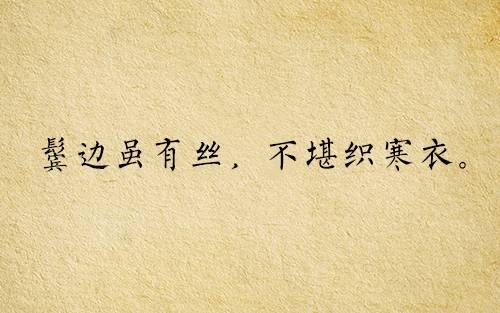 鬓边虽有丝，不堪织寒衣。